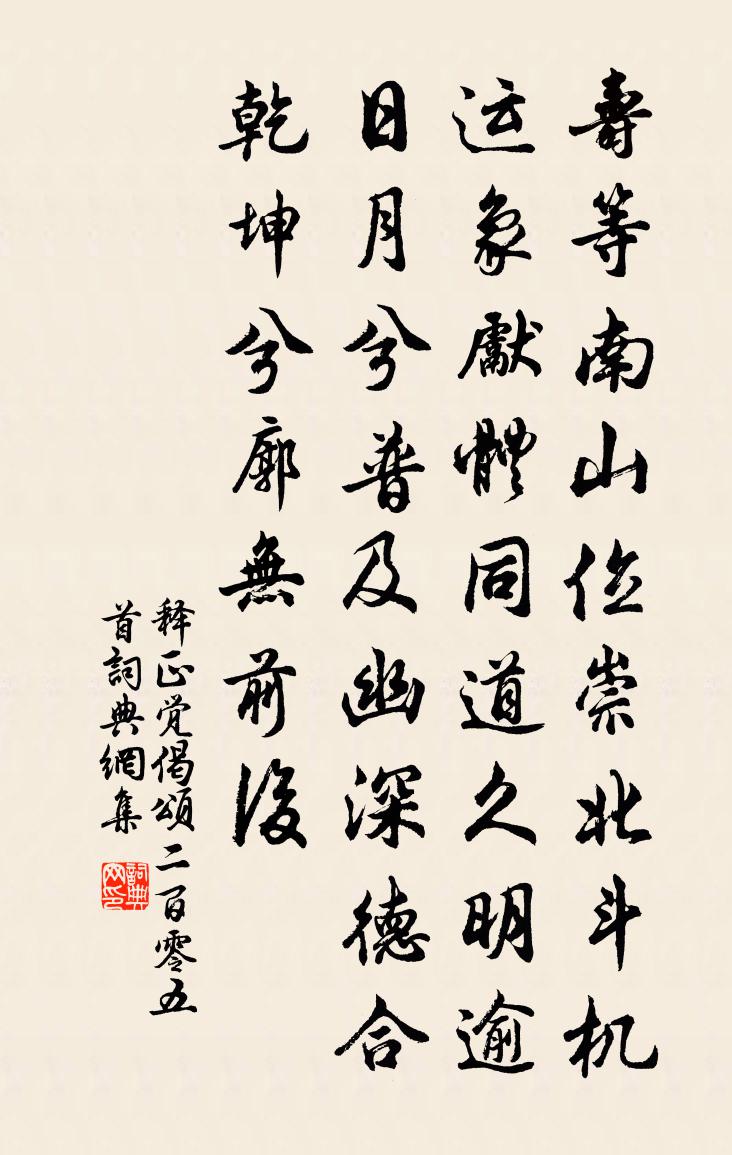 壽等南山位崇北斗机
运象獻體同道久明逾
日月兮普及幽深德合
乾坤兮廓無前後
释正觉偈頌二百零五
首詞典網集
詞典网印